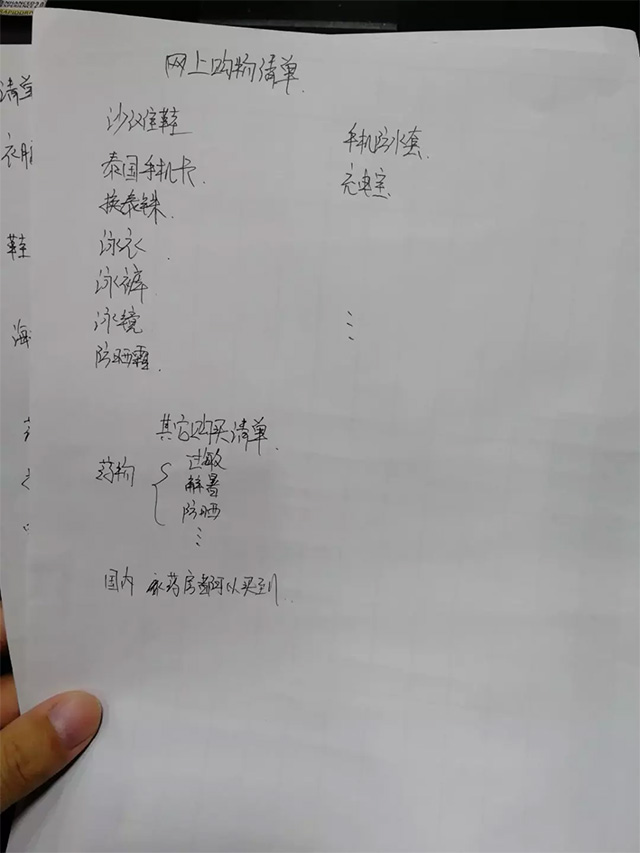 网上购物清单
泰国手机卡
换泰铢
泳衣
泳裤
泳镜
防晒霜
手机防水套
充电宝
其它购买清单
药物
过敏
解暑
防晒
国内 药房都可以买到
清单
鞋
海